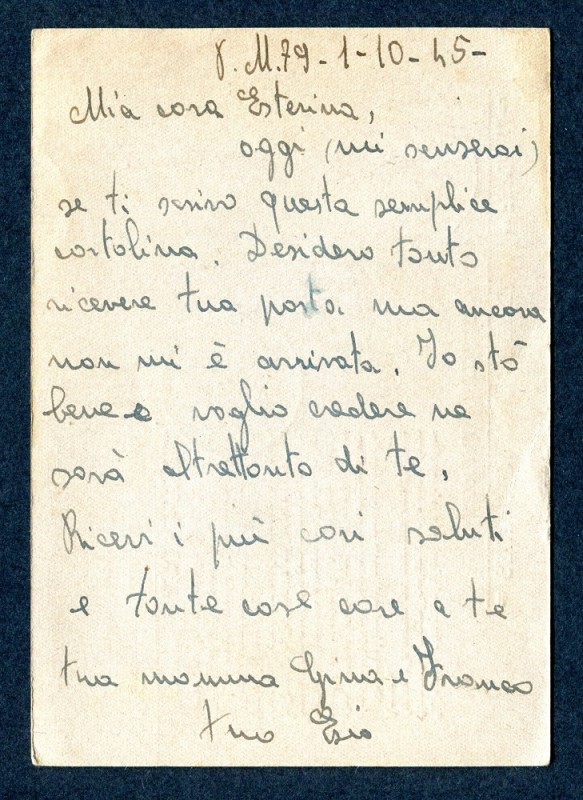 P.M.79-1-10-45-
Mia cara Esterina,
oggi (mi scuserai)
se ti scrivo questa semplice
cartolina. Desidero tanto
ricevere tua posta. ma ancora
non mi è arrivata. Io stò
bene e voglio credere ne
sarà altrettanto di te,
Ricevi i più cari saluti
e tante cose care a te
tua mamma Gina e Franco
tuo Ezio